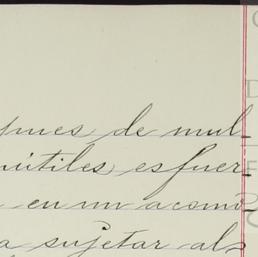 pues de mul-
nutiles esfuer-
en un acomo-
a sujetar als